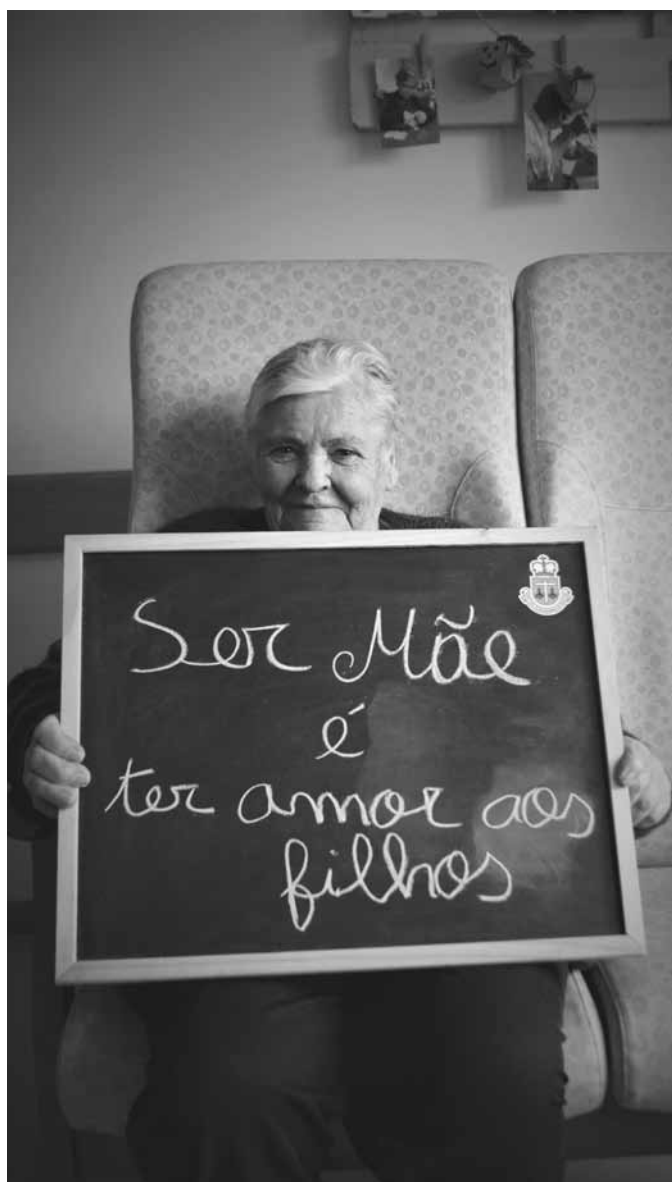 Ser Mãe
é
ter amor aos
filhos